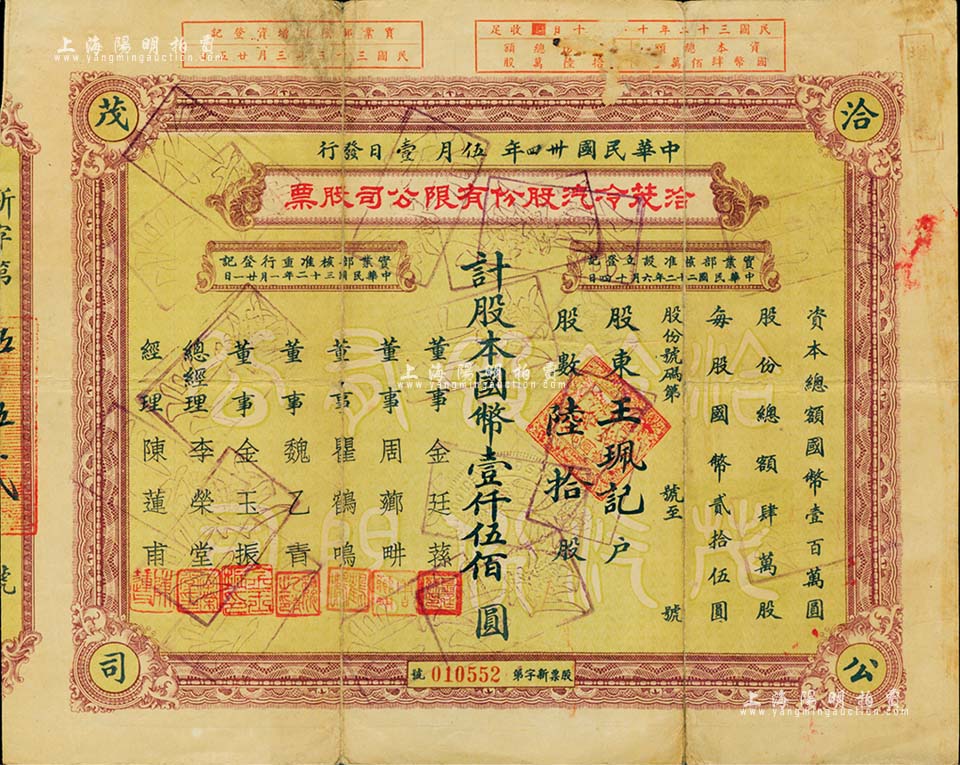 民國三十二年十
十日
收足
資本總額
國幣肆佰萬
總額
拾陸萬股
實業部
增資登記
民國三十三年三月廿五
洽
茂
公
司
中華民國卅四年伍月壹日發行
洽茂冷汽股份有限公司股票
實業部核准設立登記
中華民國二十二年六月十四日
實業部核准重行登記
中華民國三十二年一月廿一日
資本總額國幣壹百萬圓
股份總額肆萬股
每股國幣貳拾伍圓
股份號碼第 號至 號
股東王珮記戶
股數陸拾股
計股本國幣壹仟伍佰圓
董事金廷蓀
董事周薌畊
董事瞿鶴鳴
董事魏乙青
董事金玉振
總經理李榮堂
經理陳蓮甫
股票新字第010552號
新字第
號
上海陽明拍賣
www.yangmingauction.com
上海陽明拍賣
www.yangmingauction.com
上海陽明拍賣
www.yangmingauction.com